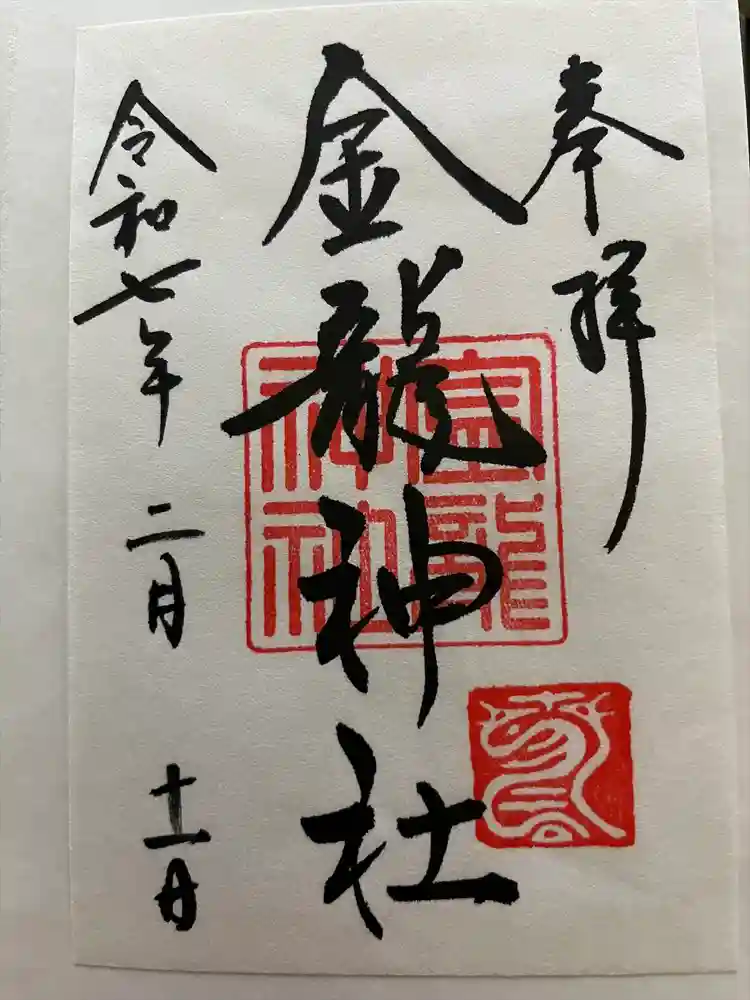 奉拝
金龍神社
金龍神社
令和七年 二月 十一日